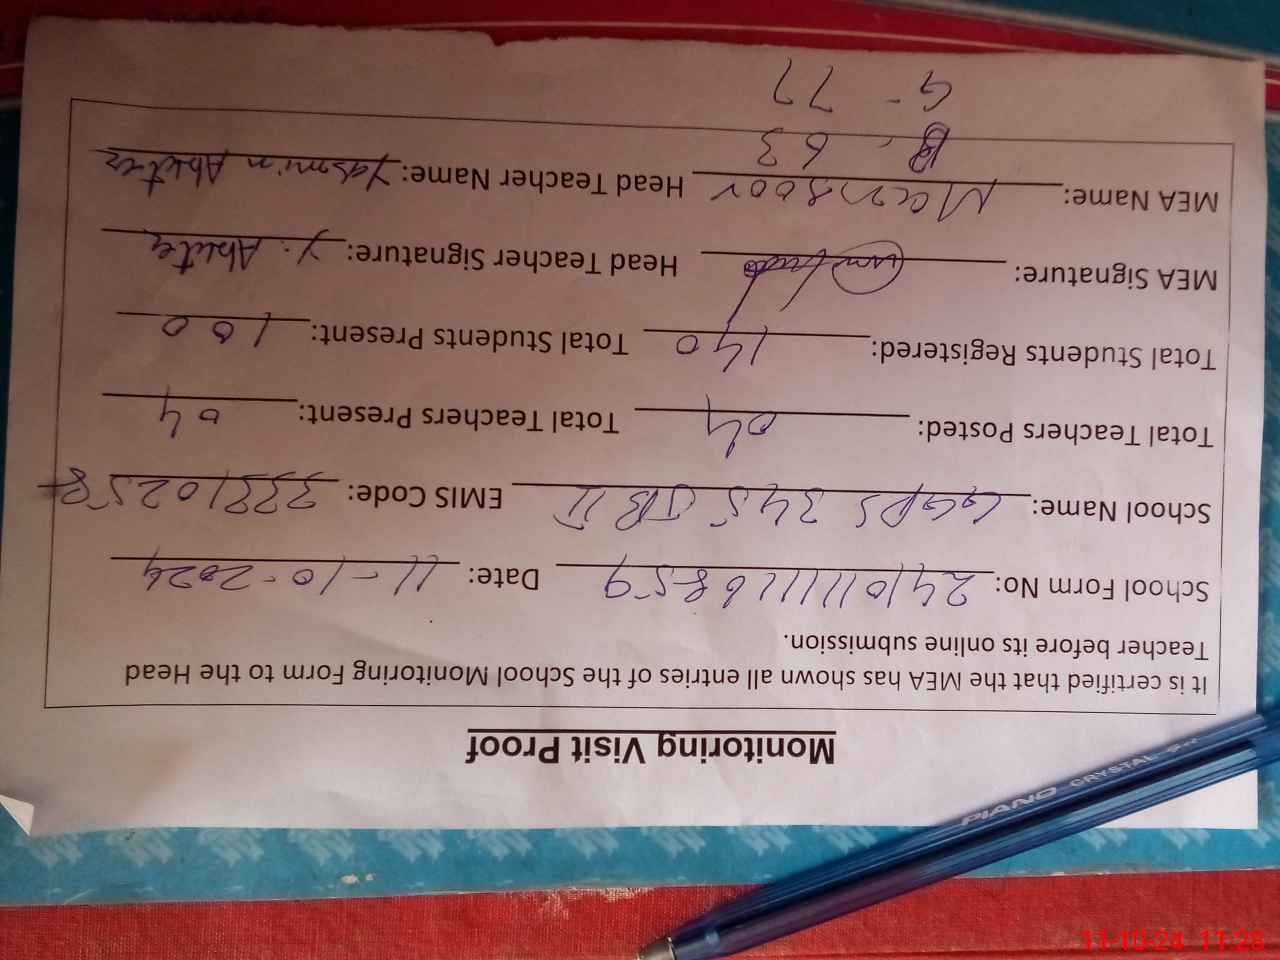 Monitoring Visit Proof
It is certified that the MEA has shown all entries of the School Monitoring Form to the Head
Teacher before its online submission.
School Form No: 2410111116859 Date: 11-10-2024
School Name: GGPS 345 JB II EMIS Code: 33310258
Total Teachers Posted: 04 Total Teachers Present: 04
Total Students Registered: 140 Total Students Present: 100
MEA Signature: Head Teacher Signature: Y.
MEA Name: Mansoor Head Teacher Name: Yasmin
B - 63
G - 77
PIANO CRYSTAL
11-10-24 11:28